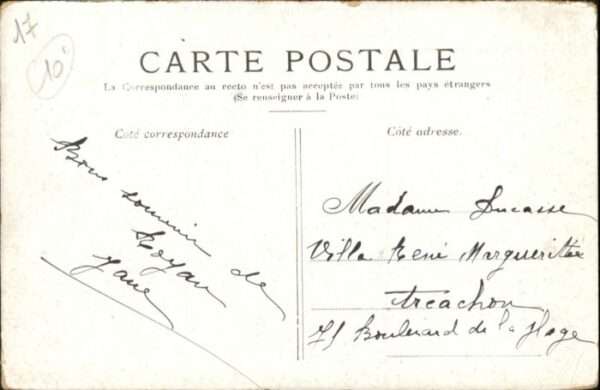 17
10
CARTE POSTALE
La Correspondance au recto n'est pas acceptée par tous les pays étrangers
(Se renseigner à la Poste)
Coté correspondance
Côté adresse.
Bons souvenir de
Royan
Jane
Madame Ducasse
Villa René Marguerite
Arcachon
71 Boulevard de la Plage